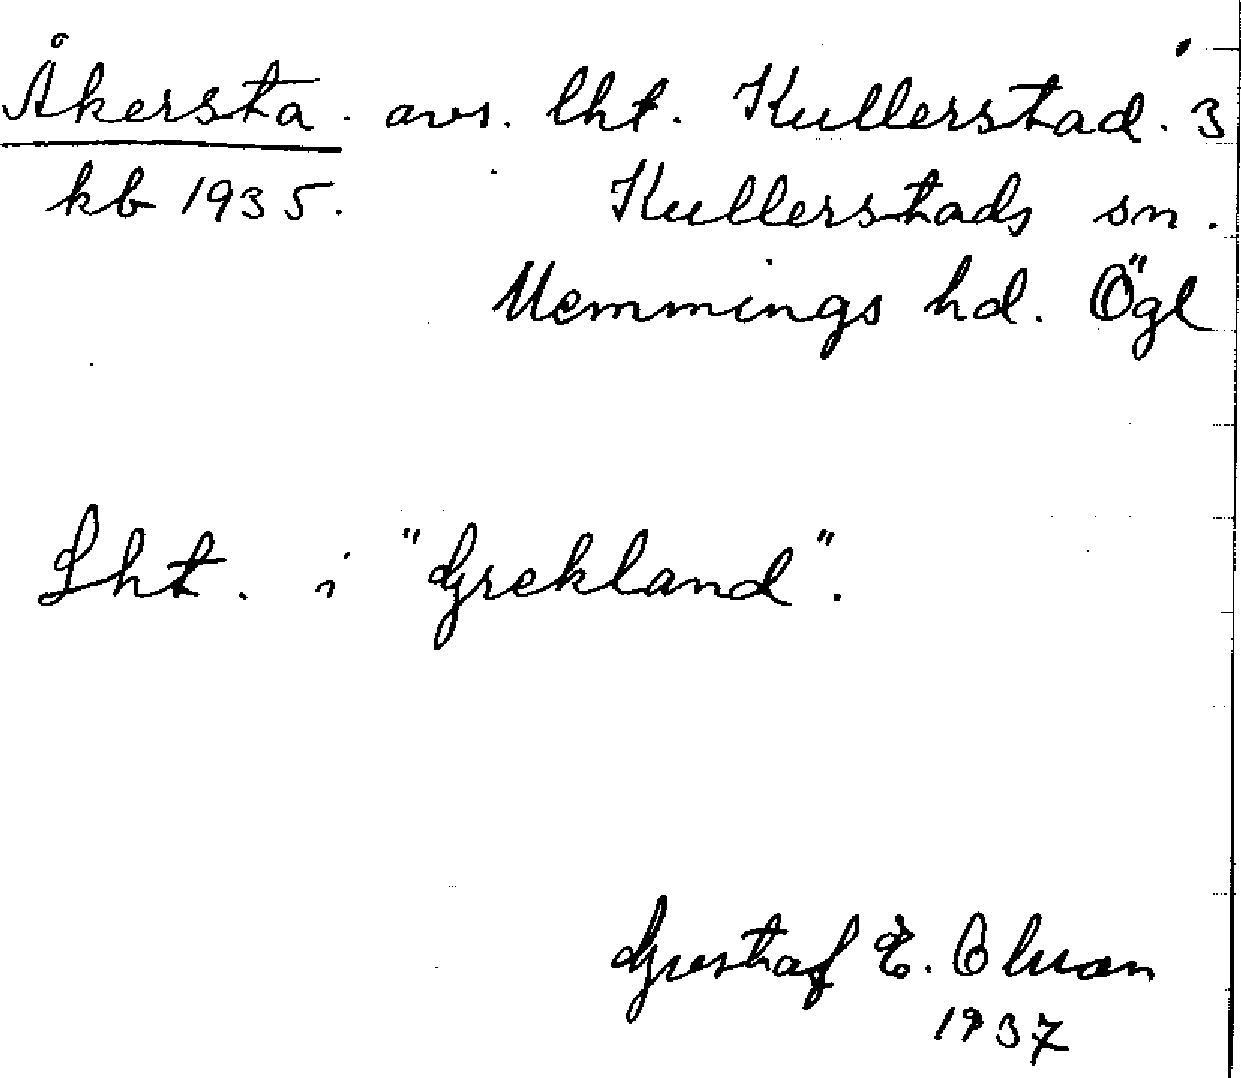 Åkersta. avs. lht. Kullerstad. 3
kb 1935. Kullerstads sn.
Memmings hd. Ögl
Lht. i "Grekland".
Gustaf E. Olsson
1937